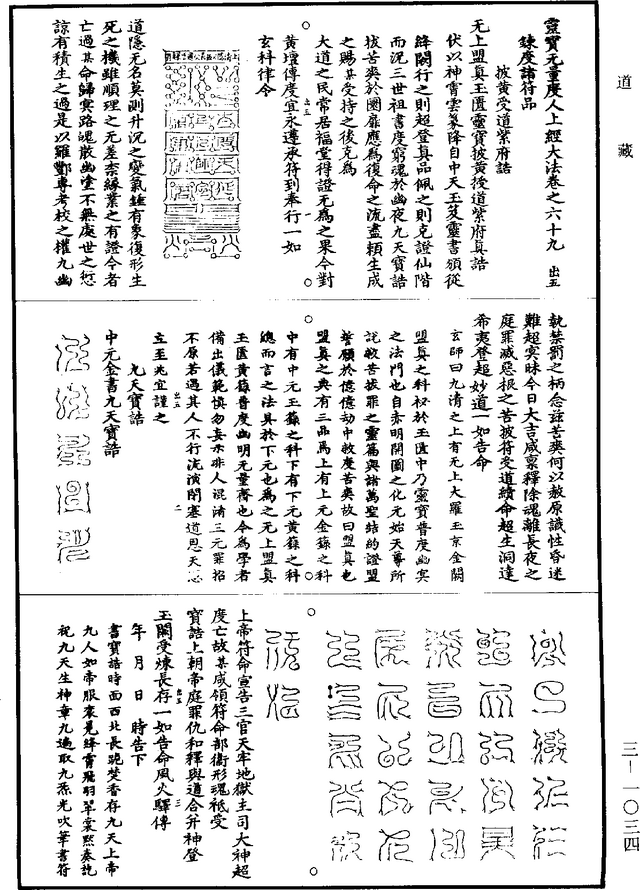 道藏
靈寶无量度人上經大法卷之六十九 出五
鍊度諸符品
披黃受道紫府誥
无上盟真玉匱靈寶披黃授道紫府真誥
伏以神霄雲篆降自中天玉笈靈書頒從
絳闕行之則超登真品佩之則克證仙階
而況三世祖書度窮魂於幽夜九天寶誥
拔苦爽於圜扉應為復命之流盡賴生成
之賜其受持之後克為
大道之民常居福堂得證无為之果今對
黃壇傳度宜永遵承符到奉行一如
玄科律令
道隱无名莫測升沉之變氣鍾有象復形生
死之機雖順理之无差柰緣業之有證今者
亡過某命歸冥路魂散幽塗不無處世之愆
諒有積生之過是以羅酆專考校之權九幽
執禁罰之柄念茲苦爽何以赦原識性昏迷
難超冥昧今日大吉咸稟釋除魂離長夜之
庭罪滅惡根之苦披符受道續命超生洞達
希夷登超妙道一如告命
玄師曰九清之上有无上大羅玉京金闕
盟真之科祕於玉匱中乃靈寶普度幽冥
之法門也自赤明開圖之化元始天尊所
說救苦拔罪之靈篇與諸萬聖結約證盟
誓願於億億劫中救度苦爽故曰盟真也
盟真之典有三品焉上有上元金籙之科
中有中元玉籙之科下有下元黃籙之科
總而言之法具於下元也為之无上盟真
玉匱黃籙普度幽明元量齋也今為學者
備出儀範慎勿妄示非人混淆三元罪招
不原若遇其人不行流演閉塞道恩天愆
立至尤宜謹之
九天寶誥
中元金書九天寶誥
上帝符命宣告三官天牢地獄主司大神超
度亡故某咸領符命部衛形魂祗受
寶誥上朝帝庭罪仇和釋與道合并神登
玉闕受煉長存一如告命風火驛傳
年 月 日 時告下
書寶誥時面西北長跪焚香存九天上帝
九人如帝服袞冕絳霄飛羽翠裳默奏訖
祝九天生神章九遍取九炁光吹筆書符
三—一〇三四